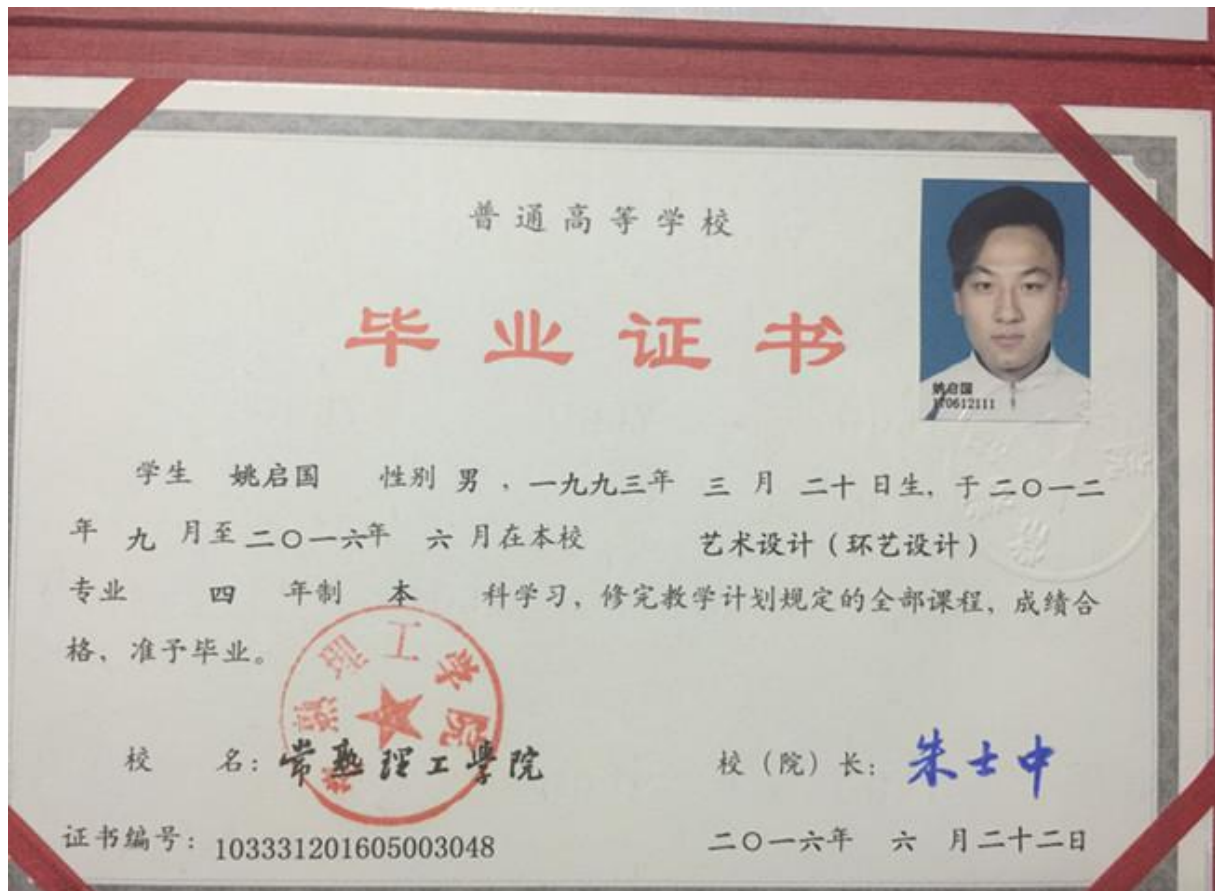 普通高等学校
毕业证书
姚启国
170612111
学生 姚启国 性别 男，一九九三年 三 月 二十 日生，于二〇一二
年 九 月至二〇一六年 六 月在本校 艺术设计（环艺设计）
专业 四 年制 本 科学习，修完教学计划规定的全部课程，成绩合
格，准予毕业。
常熟理工学院
校 名：常熟理工學院 校（院）长：朱士中
证书编号：103331201605003048 二〇一六年 六 月二十二日